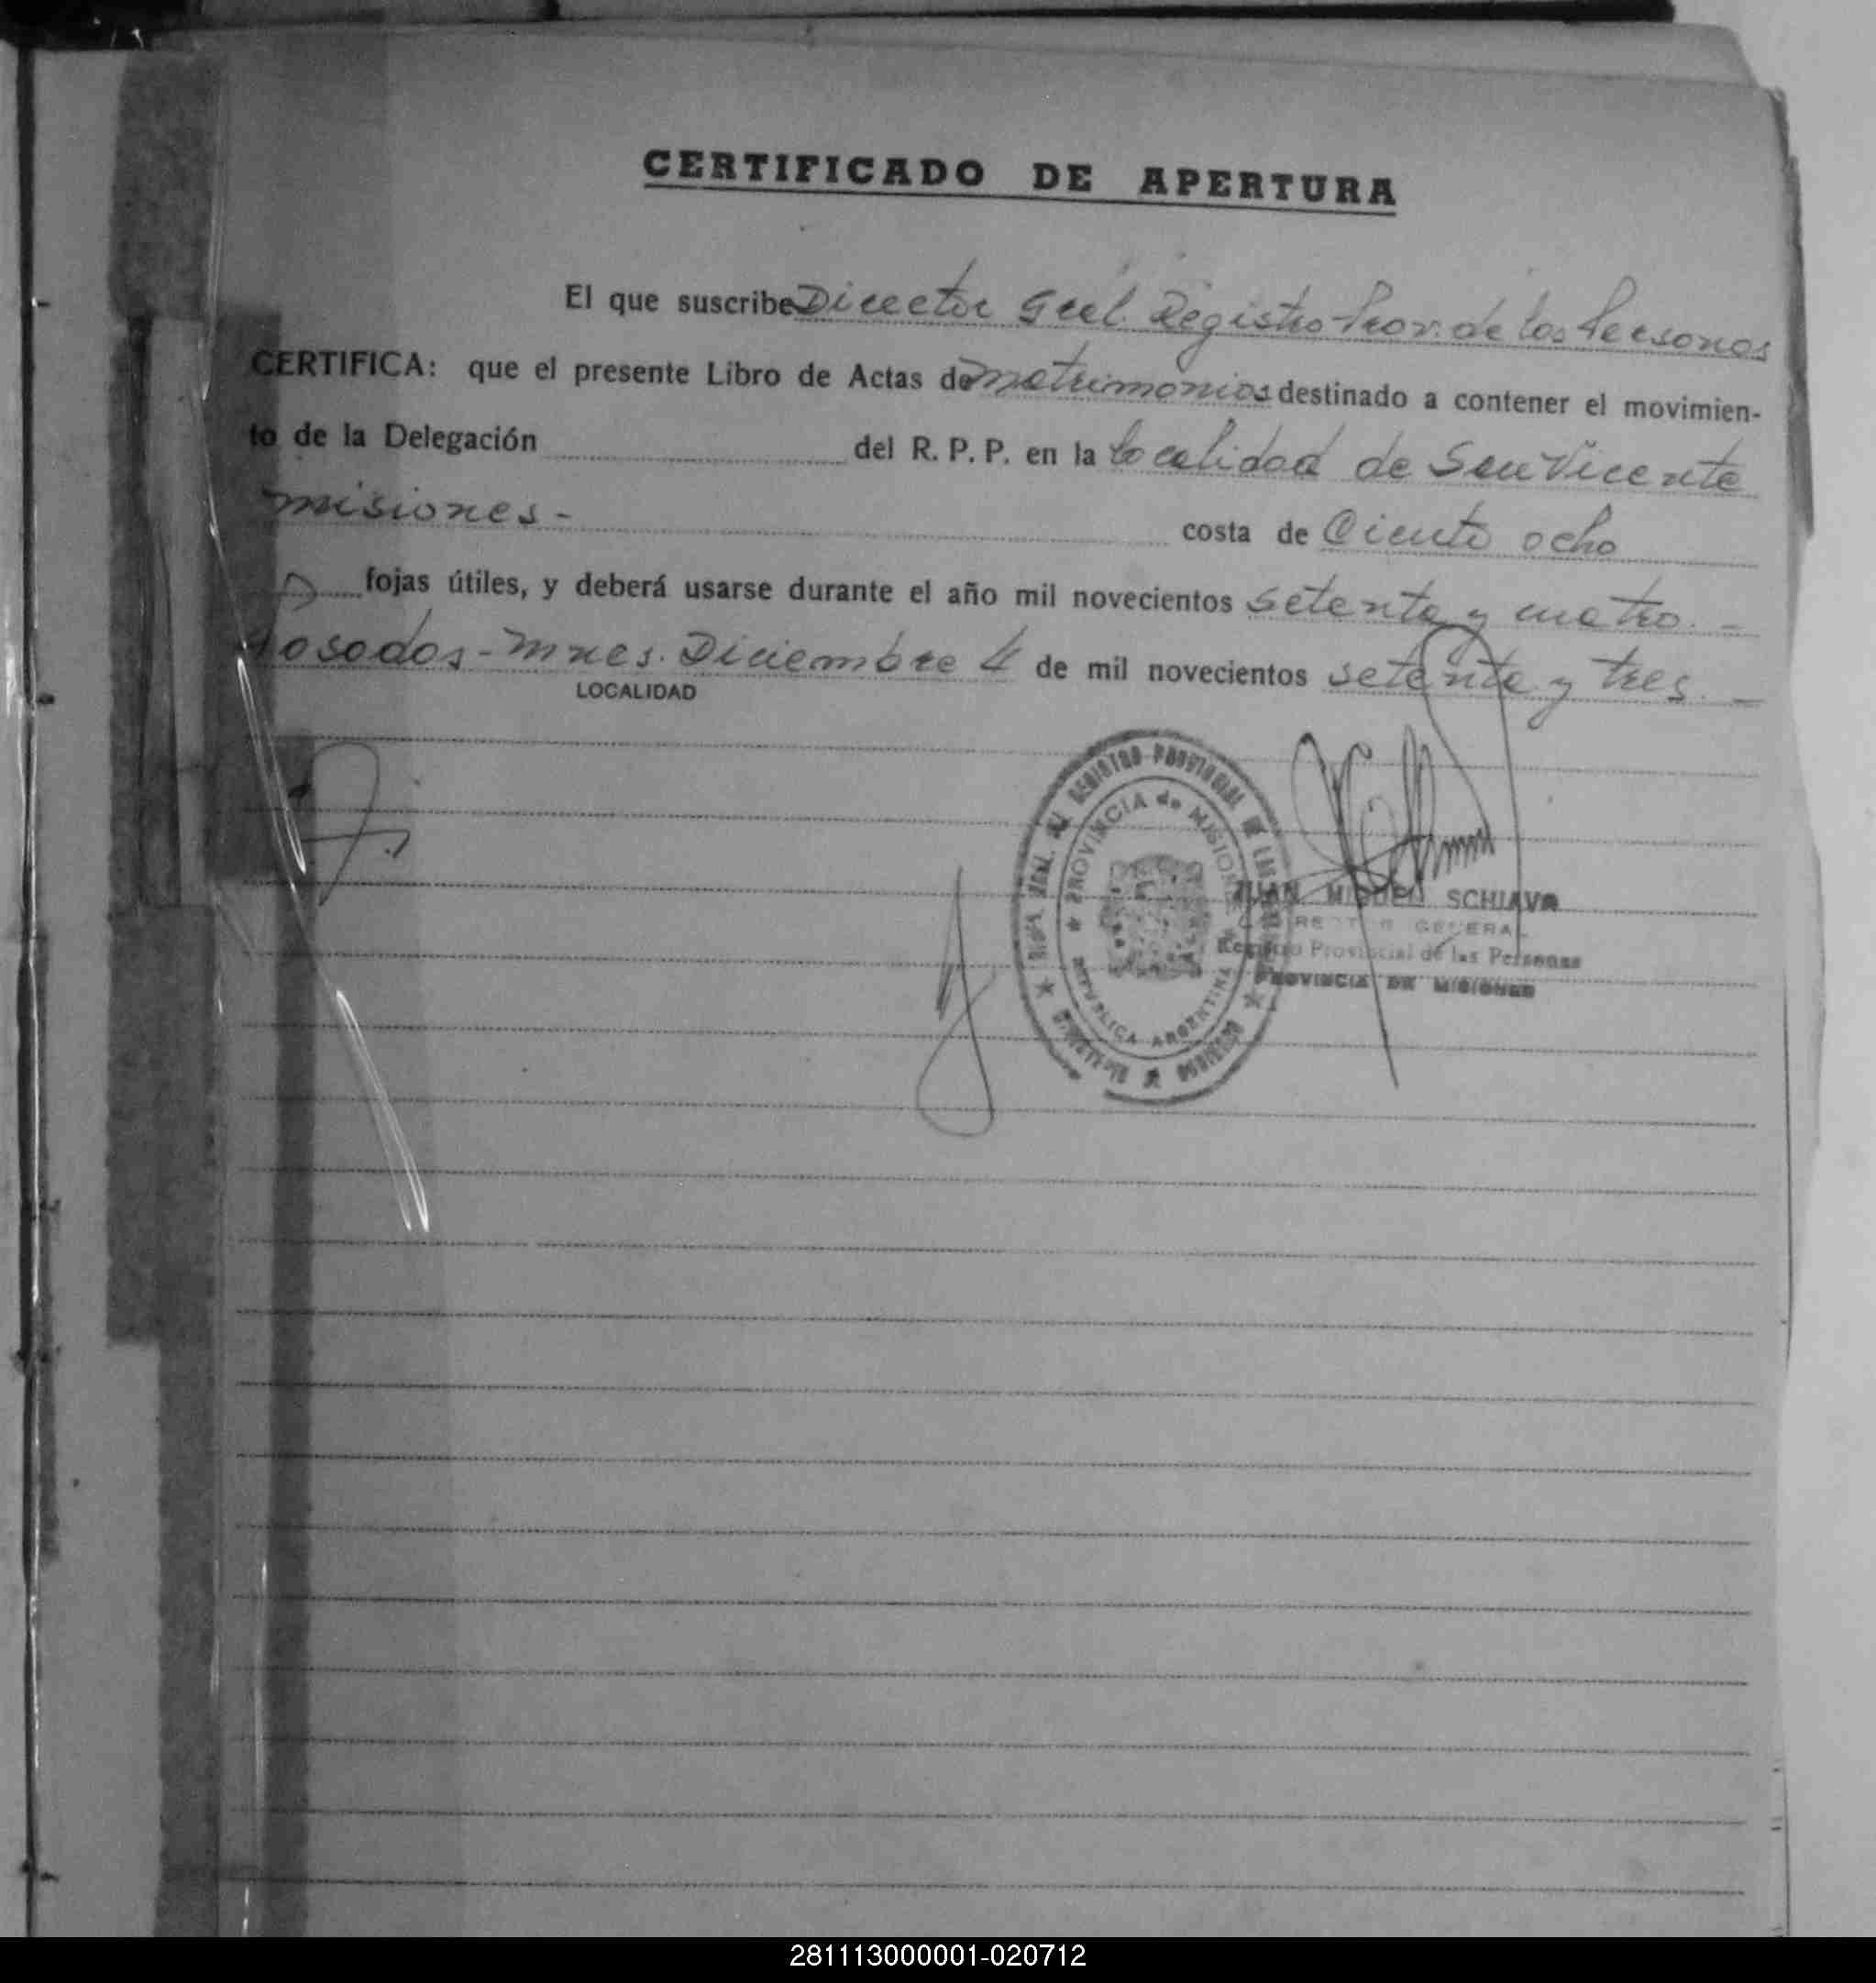 CERTIFICADO DE APERTURA
El que suscribe Director Gral. Registro Prov. de las Personas
CERTIFICA: que el presente Libro de Actas de matrimonios destinado a contener el movimien-
to de la Delegación del R. P. P. en la localidad de San Vicente
misiones -
costa de Ciento ocho
fojas útiles, y deberá usarse durante el año mil novecientos setenta y cuatro. -
Posadas - Mnes. Diciembre 4 de mil novecientos setenta y tres. -
LOCALIDAD
REGISTRO PROVINCIAL DE LAS
PROVINCIA de MISIONES
REPUBLICA ARGENTINA
JUAN MIGUEL SCHIAVO
DIRECTOR GENERAL
Registro Provincial de las Personas
PROVINCIA DE MISIONES
281113000001-020712